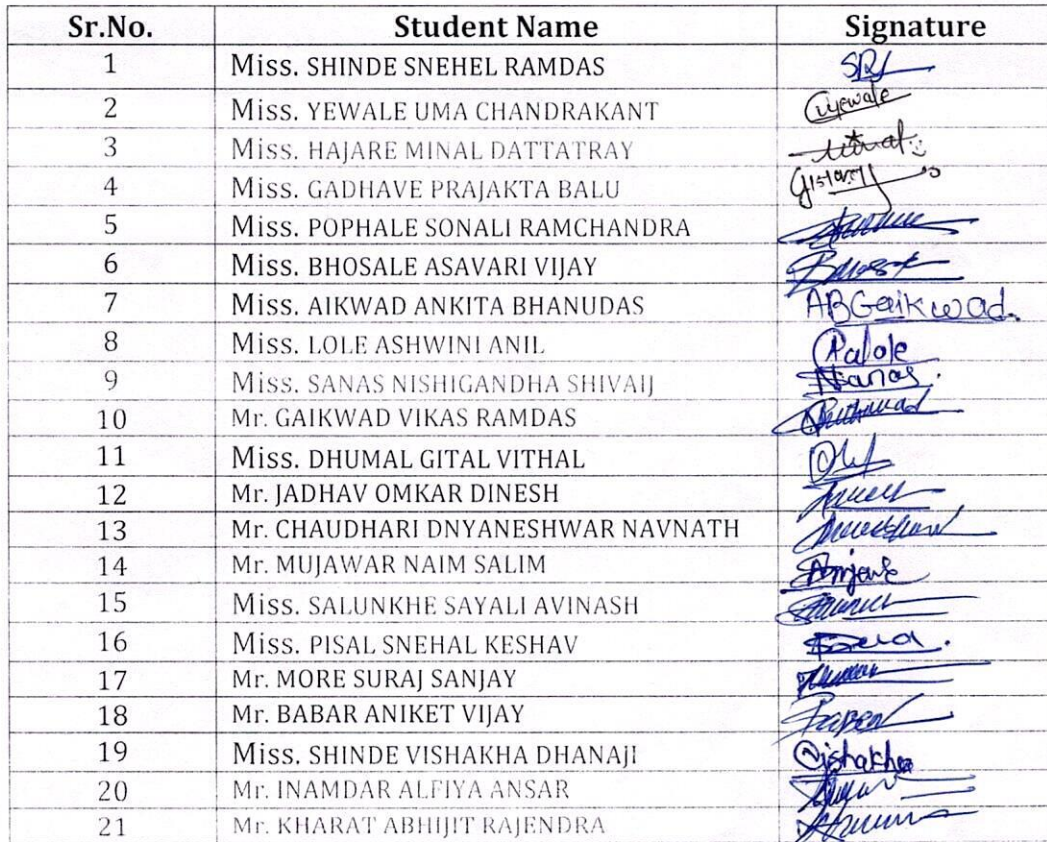 Sr.No. Student Name Signature
1 Miss. SHINDE SNEHEL RAMDAS
2 Miss. YEWALE UMA CHANDRAKANT Uyewale
3 Miss. HAJARE MINAL DATTATRAY
4 Miss. GADHAVE PRAJAKTA BALU
5 Miss. POPHALE SONALI RAMCHANDRA
6 Miss. BHOSALE ASAVARI VIJAY
7 Miss. AIKWAD ANKITA BHANUDAS ABGaikwad.
8 Miss. LOLE ASHWINI ANIL
9 Miss. SANAS NISHIGANDHA SHIVAIJ
10 Mr. GAIKWAD VIKAS RAMDAS
11 Miss. DHUMAL GITAL VITHAL
12 Mr. JADHAV OMKAR DINESH
13 Mr. CHAUDHARI DNYANESHWAR NAVNATH
14 Mr. MUJAWAR NAIM SALIM
15 Miss. SALUNKHE SAYALI AVINASH
16 Miss. PISAL SNEHAL KESHAV
17 Mr. MORE SURAJ SANJAY
18 Mr. BABAR ANIKET VIJAY
19 Miss. SHINDE VISHAKHA DHANAJI Vishakha
20 Mr. INAMDAR ALFIYA ANSAR
21 Mr. KHARAT ABHIJIT RAJENDRA